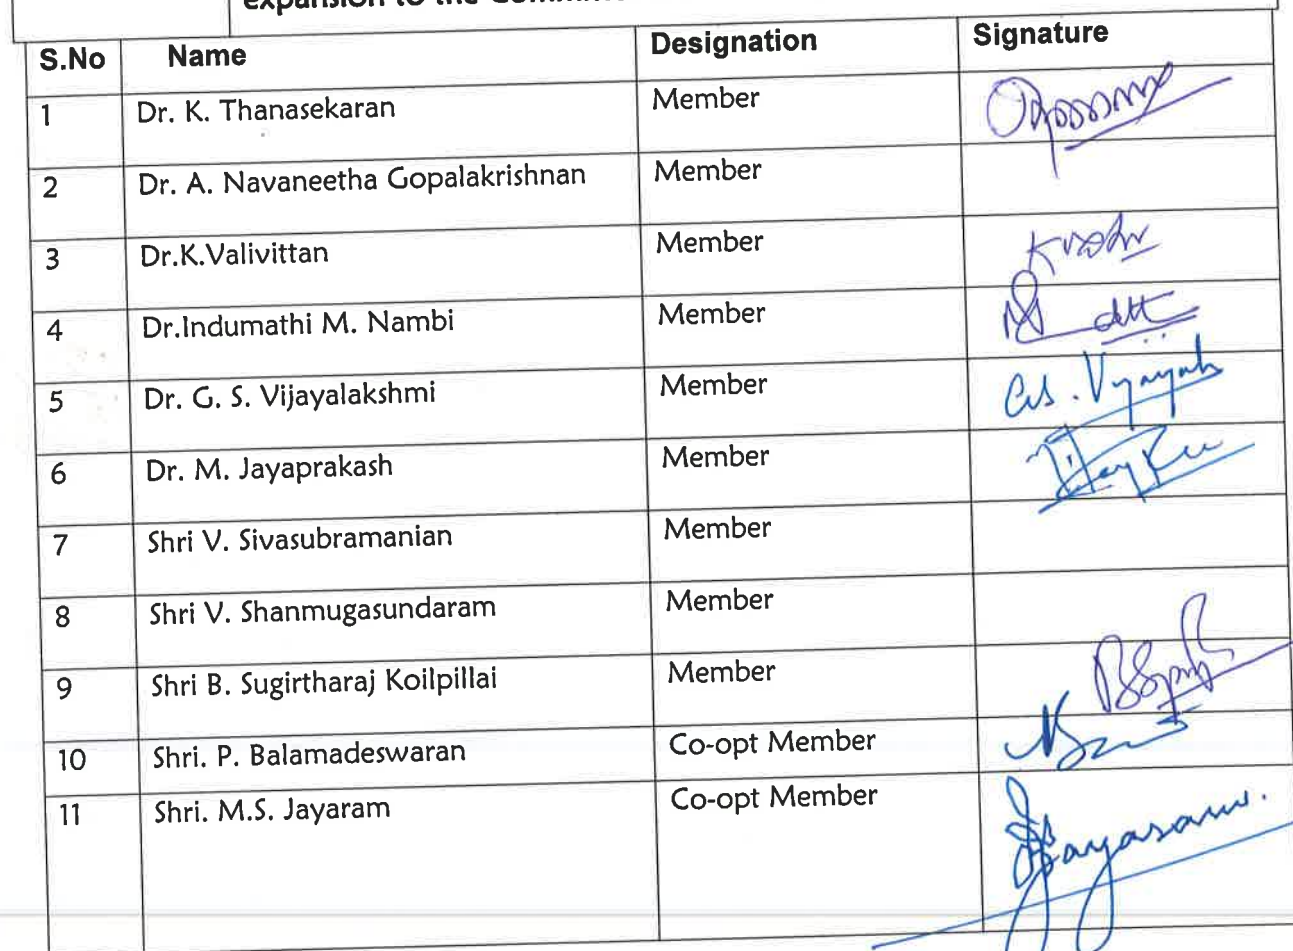 expansion to the
S.No Name Designation Signature
1 Dr. K. Thanasekaran Member
2 Dr. A. Navaneetha Gopalakrishnan Member
3 Dr.K.Valivittan Member
4 Dr.Indumathi M. Nambi Member
5 Dr. G. S. Vijayalakshmi Member
6 Dr. M. Jayaprakash Member
7 Shri V. Sivasubramanian Member
8 Shri V. Shanmugasundaram Member
9 Shri B. Sugirtharaj Koilpillai Member
10 Shri. P. Balamadeswaran Co-opt Member
11 Shri. M.S. Jayaram Co-opt Member